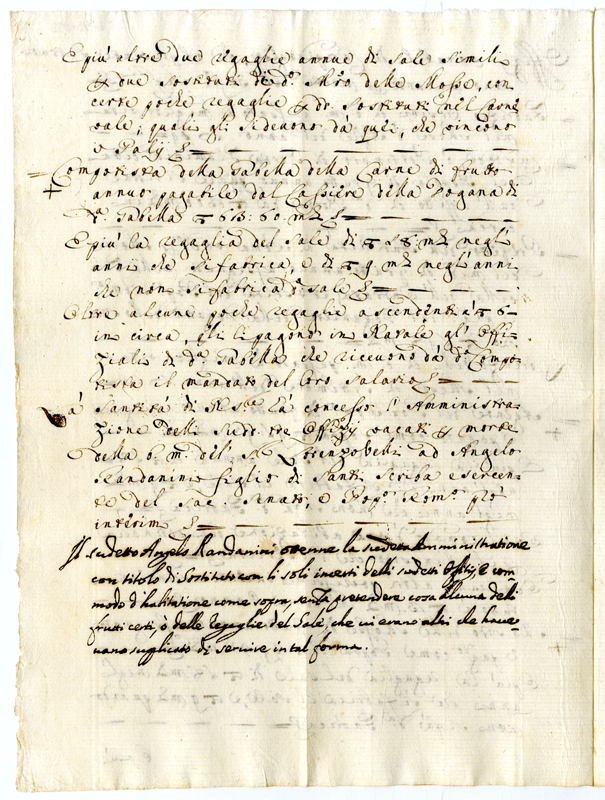 E più altre due regaglie annue di sale simili
à due sostituti di d.º Mro delle Mosse, con
certe poche regaglie à dr. sostituti nel Carne
vale, quali gli si devono dà quei, che vincono
i Palij
Computista della Gabella della Carne di frutto
annuo pagabile dal Cassiere della Dogana di
d.ª Gabella 60 m.ta
E più la regaglia del sale di 18 m.ta negl'
anni che si fabrica, e di 9 m.ta negl'anni
che non si fabrica il sale
Oltre alcune poche regaglie ascendenti à 6
in circa, gli si pagono in Natale gl'Offi-
ziali di d.ª Gabella, che ricevono dà d.º Compu-
tista il mandato del loro salario
Santità di N. S.re hà concesso l'Amministra-
zione delli sudd. tre Offizij vacati per morte
della b. m. del Lorenzo Velli ad Angelo
Randanini figlio di Santi Scriba esercen-
te del sac. Senato, e Pop.º Rom.º
interim
Il sudetto Angelo Randanini ottenne la sudetta Amministratione
con titolo di Sostituto con li soli incerti delli sudetti Offitij, e com-
modo d'habitatione come sopra, senza pretendere cosa alcuna delli
frutti certi, ò delle regaglie del Sale, che vi erano altri che have-
vano suplicato di servire in tal forma.